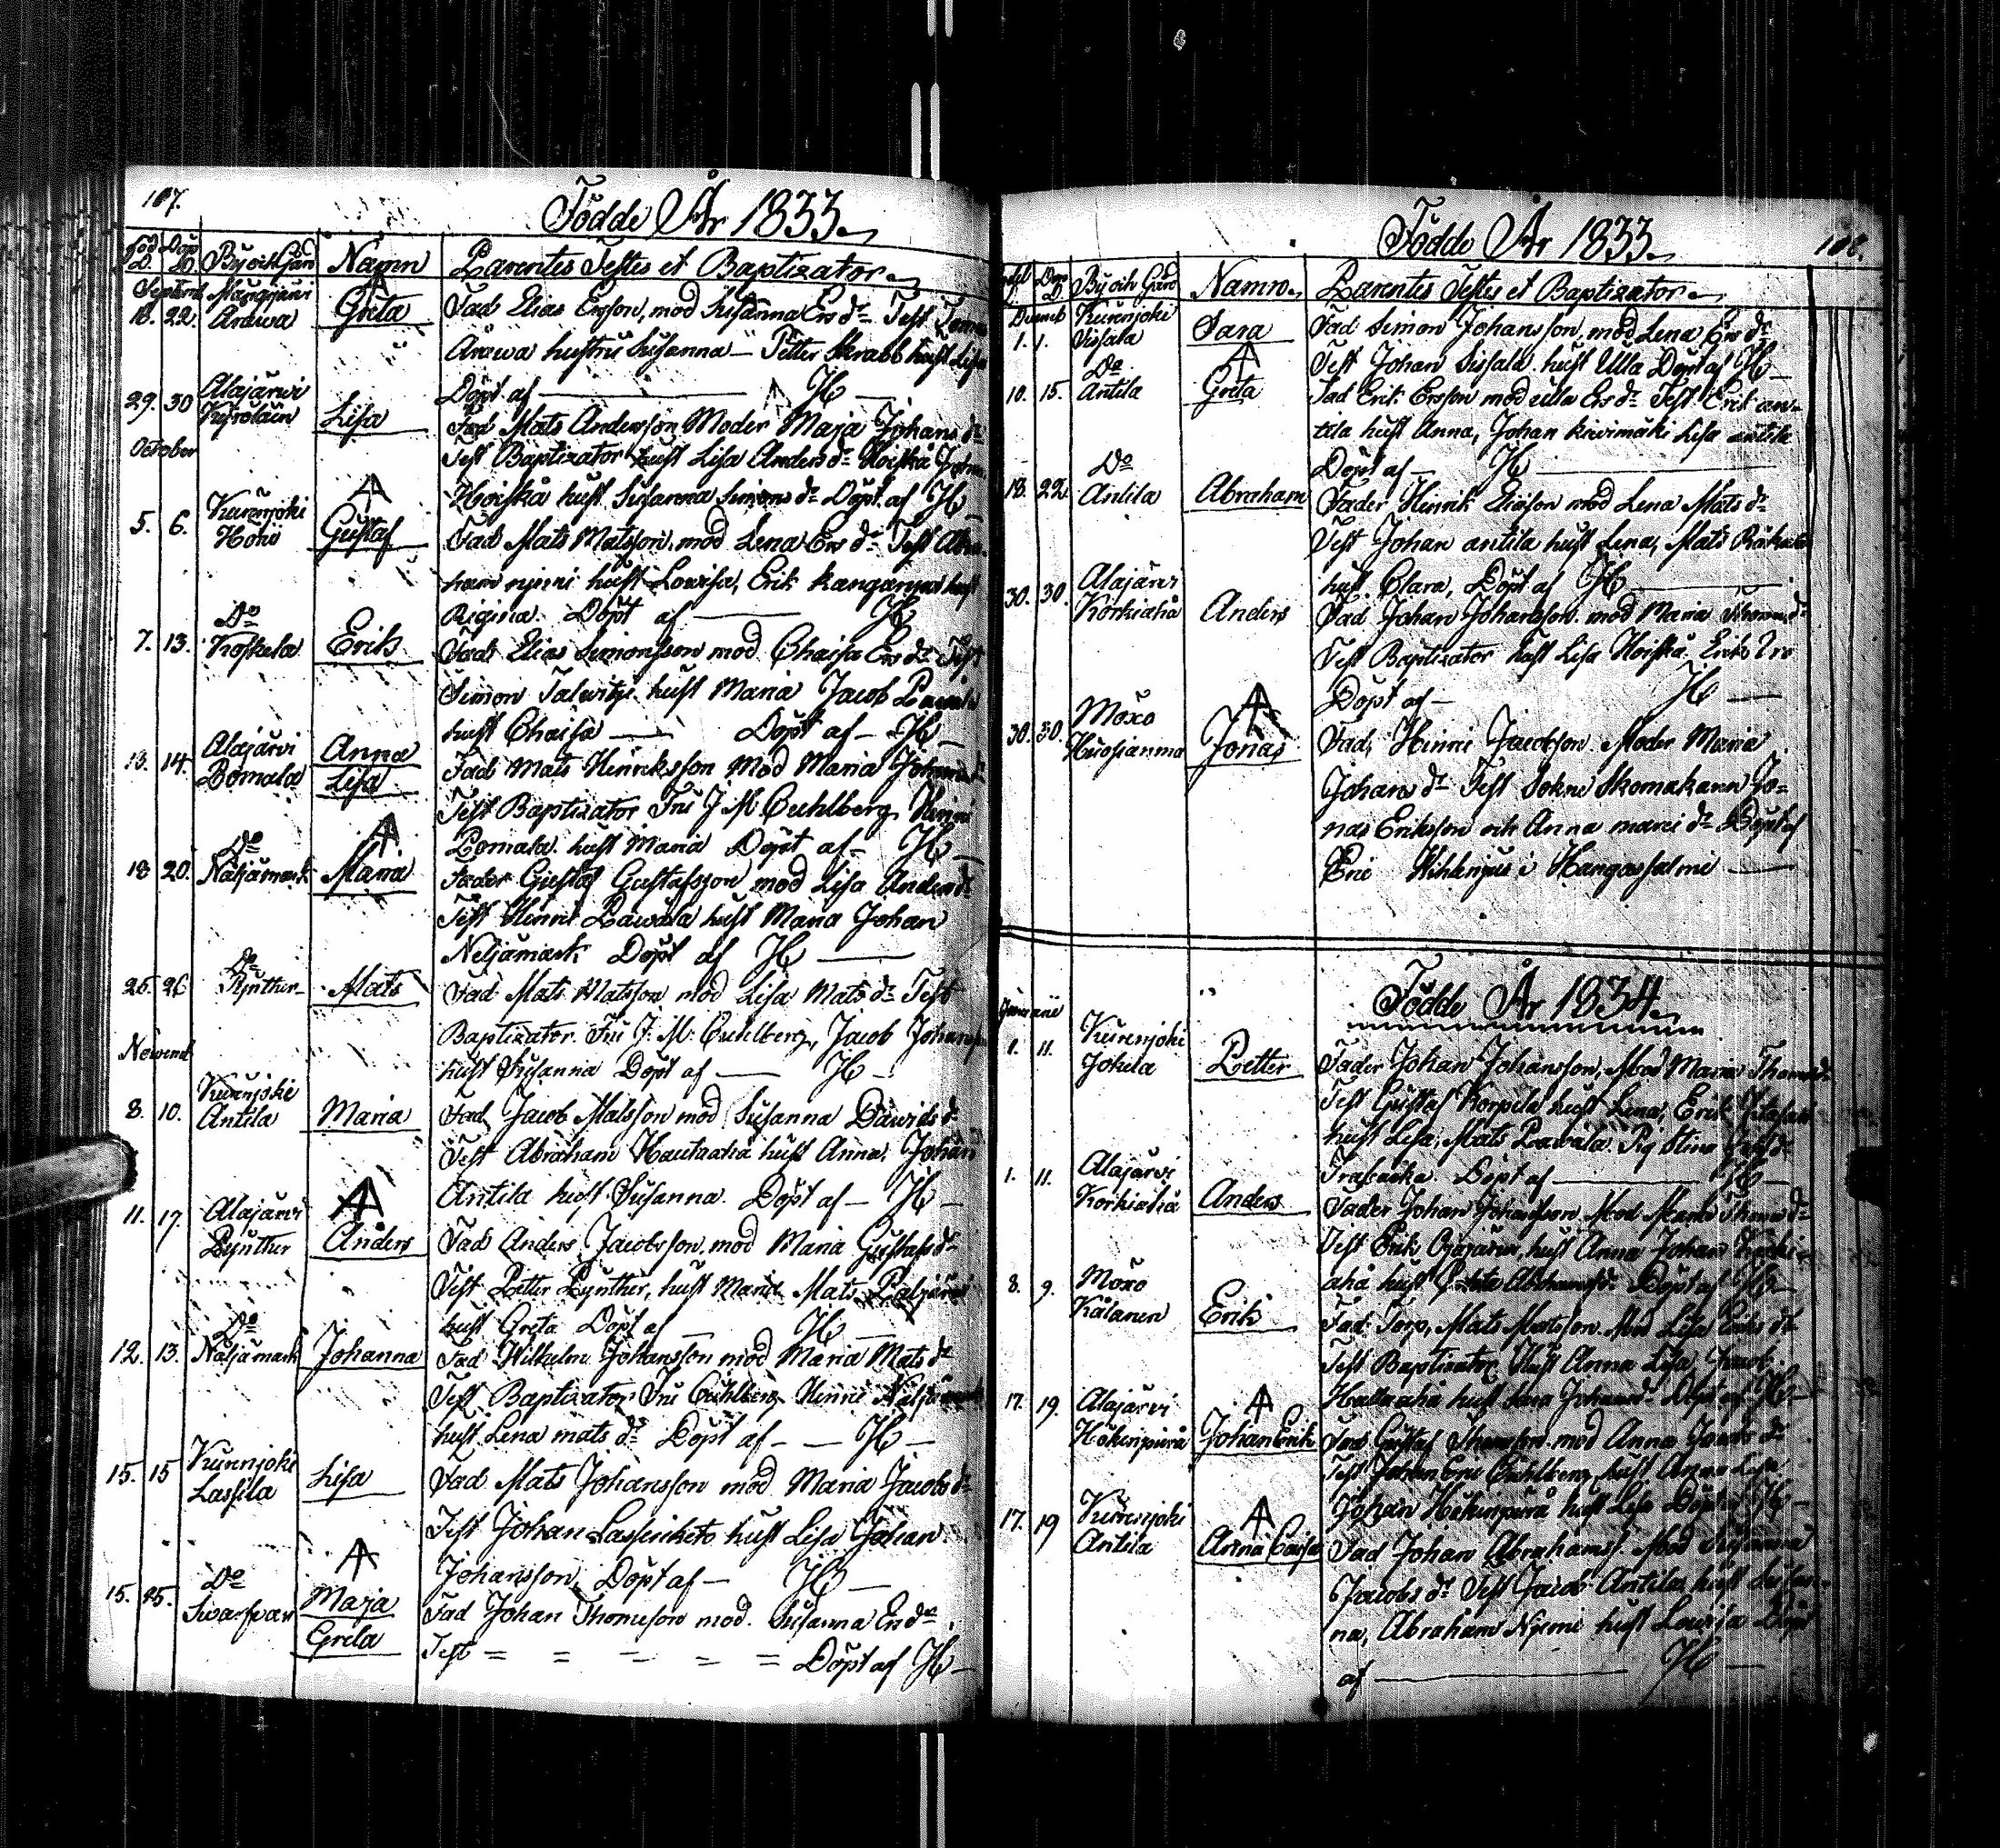 107.
Födde År 1833.
Föd D. Döp D. By och Gård Namn Parentes Testes et Baptizator
Septemb Mängijärvi
18. 22. Arawa Greta Fad Elias Ersson, mod Susanna Ers dr Test
Arawa hustru Susanna — Petter Skrabb hust Lisa
Döpt af — H —
29. 30 Alajärwi Kyrolain Lisa Fad Mats Andersson Moder Maja Johans dr
October
Test Baptizator hust Lisa Anders dr Hoiskå Johan
Hoiskå hust. Susanna Simons dr Döpt af H —
5. 6. Kurenjoki Hohu Gustaf Fad Mats Matsson, mod Lena Ers dr Test Abra-
ham njemi hust Lowisa, Erik Kangas hust
Regina. Döpt af — H
7. 13. Do Koskela Erik Fad Elias Simonsson mod Chaisa Ers dr Test
Simon Talwitje hust Maria Jacob
hust Chaisa — Döpt af — H —
13. 14. Alajärvi Pomala Anna Lisa Fad Mats Henriksson Mod Maria Johans dr
Test Baptizator Fru J M Cuhlberg, Henric
Pomala hust Maria Döpt af — H —
18 20. Do Näljämark Maria Fader Gustaf Gustafsson mod Lisa Anders dr
Test Henric Pawola hust Maria Johan
Neljämark Döpt af H —
25. 26 Do Pynther Mats Fad Mats Matsson mod Lisa Mats dr Test
Baptizator Fru J. M. Cuhlberg, Jacob Johansson
Novemb
hust Susanna Döpt af — H —
8. 10. Kurenjoki Antila Maria Fad Jacob Matsson mod Susanna Dawids dr
Test Abraham Hautaaha hust Anna, Johan
Antila hust Susanna. Döpt af — H —
11. 17. Alajärvi Pynther Anders Fad Anders Jacobsson, mod Maria Gustafs dr
Test Petter Pynther, hust Maria Mats Paljärvi
hust Greta Döpt af — H —
12. 13. Do Näljämark Johanna Fad Wilhelm Johansson mod Maria Mats dr
Test Baptizator Fru Cuhlberg Henric Näljämark
hust Lena mats dr Döpt af — — H —
15. 15 Kurenjoki Lassila Lisa Fad Mats Johansson mod Maria Jacobs dr
Test Johan hust Lisa Johan
Johansson, Döpt af — H —
15. 25. Do Swarfvar Maja Greta Fad Johan Thomeson mod. Susanna Ers dr
Test = = — = = Döpt af H —
Födde År 1833.
108.
Född Döp D By och Gård Namn. Parentes Testes et Baptizator
Decemb
1. 1. Kurenjoki Sissala Sara Fad Simon Johansson, mod Lena Ers dr
Test Johan Sissala hust Ulla Döpt af H —
10. 15. Do Antila Greta Fad Erik Ersson mod ulla Ers dr Test Erik an-
tila hust Anna, Johan kiwimäki Lisa antila
Döpt af — H —
18. 22. Do Antila Abraham Fader Henrik Eliasson mod Lena Mats dr
Test Johan antila hust Lena, Mats
hust. Clara, Döpt af H —
30. 30. Alajärvi Korkiahå Anders Fad Johan Johansson. mod Maria Thomas dr
Test Baptizator hust Lisa Hoiskå Erik
Döpt af — H —
30. 30. Moxo Huosianma Jonas Fad, Henric Jacobson Moder Maria
Johans dr Test Sokne Skomakaren Jo-
nas Eriksson och Anna marci dr Döpt af
Eric Wihlenius i Kangassalmi —
Födde År 1834.
Januarii
1. 11. Kurenjoki Jokela Petter Fader Johan Johansson, Mod Maria Thomas dr
Test Gustaf Korpela hust Lena, Erik
hust Lisa, Mats Pawola Pig Stina dr
Döpt af — H —
1. 11. Alajärvi Korkiahå Anders Fader Johan Johansson Mod Maria Thomas dr
Test Erik Ojajärvi, hust Anna Johan Korki-
ahå hust Greta Abrahams dr Döpt af H —
8. 9. Moxo Kålanen Erik Fad Torp, Mats Matsson Mod Lisa Eriks dr
Test Baptizator Hust Anna Lisa Jacob
hust Lena Johans dr Döpt af H —
17. 19. Alajärvi Håkinpurå Johan Erik Fad Gustaf Thomsson mod Anna Jacobs dr
Test Johan Eric Cuhlberg hust Anna Lisa
Johan Håkinpurå hust Lisa Döpt af H —
17. 19 Kurenjoki Antila Anna Caisa Fad Johan Abrahamss. Mod Susanna
Jacobs dr Test Jacob Antila hust Susan-
na, Abraham Njemi hust Lowisa Döpt
af — H —